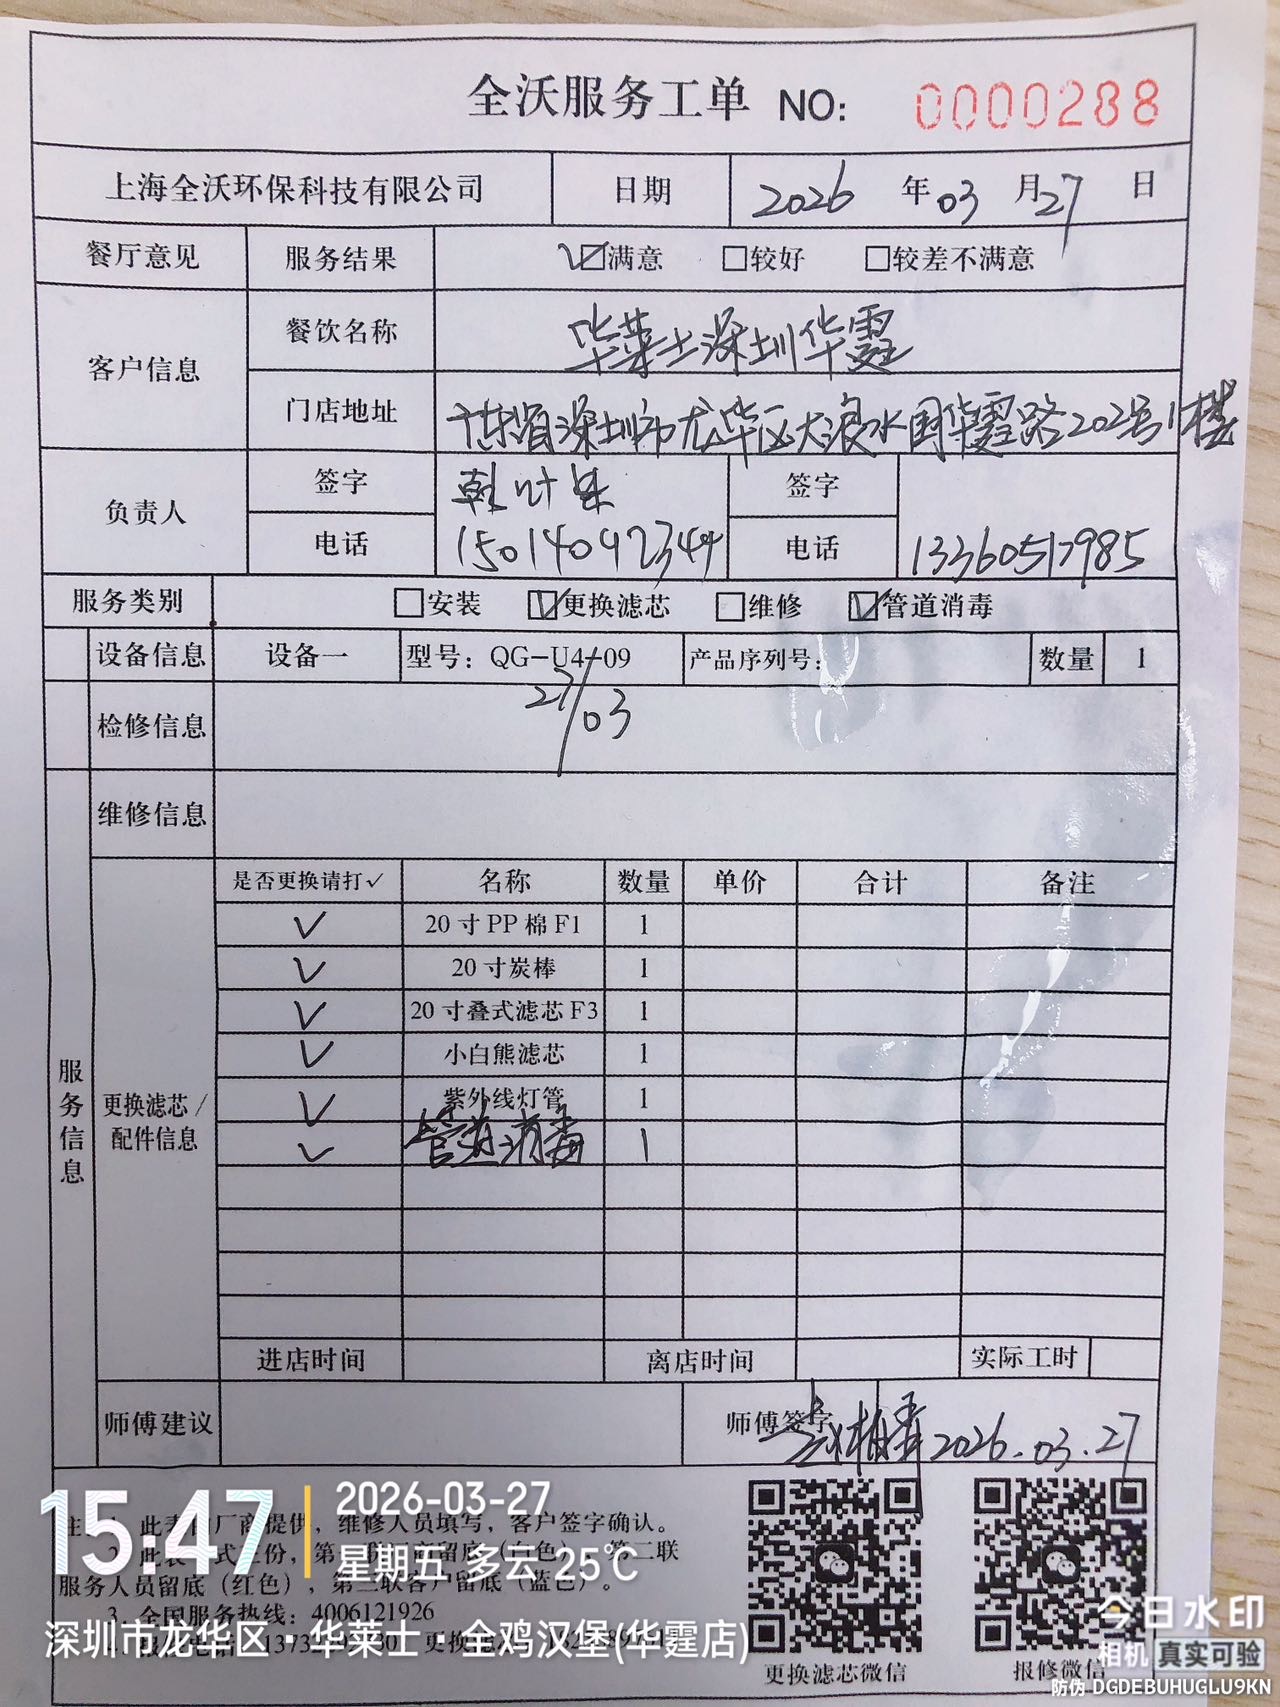 全沃服务工单 NO: 0000288
上海全沃环保科技有限公司 日期 2026 年 03 月 27 日
餐厅意见 服务结果 ☑满意 □较好 □较差不满意
客户信息 餐饮名称 华莱士深圳华霆
门店地址 广东省深圳市龙华区大浪水围华霆路202号1楼
负责人 签字 签字
电话 15014042344 电话 13360517985
服务类别 □安装 ☑更换滤芯 □维修 ☑管道消毒
设备信息 设备一 型号: QG-U4-09 产品序列号: 数量 1
检修信息 27/03
维修信息
服务信息
更换滤芯/
配件信息
是否更换请打✓ 名称 数量 单价 合计 备注
✓ 20寸PP棉F1 1
✓ 20寸炭棒 1
✓ 20寸叠式滤芯F3 1
✓ 小白熊滤芯 1
✓ 紫外线灯管 1
✓ 管道消毒 1
进店时间 离店时间 实际工时
师傅建议 师傅签字 2026.03.27
注: 1. 此表由厂商提供，维修人员填写，客户签字确认。
2. 此表一式三份，第一联 商留底（白色），第二联
服务人员留底（红色），第三联客户留底（蓝色）。
3. 全国服务热线: 4006121926
更换滤芯微信 报修微信
15:47
2026-03-27
星期五 多云 25℃
深圳市龙华区·华莱士·全鸡汉堡(华霆店)
今日水印
相机 真实可验
防伪 DGDEBUHUGLU9KN